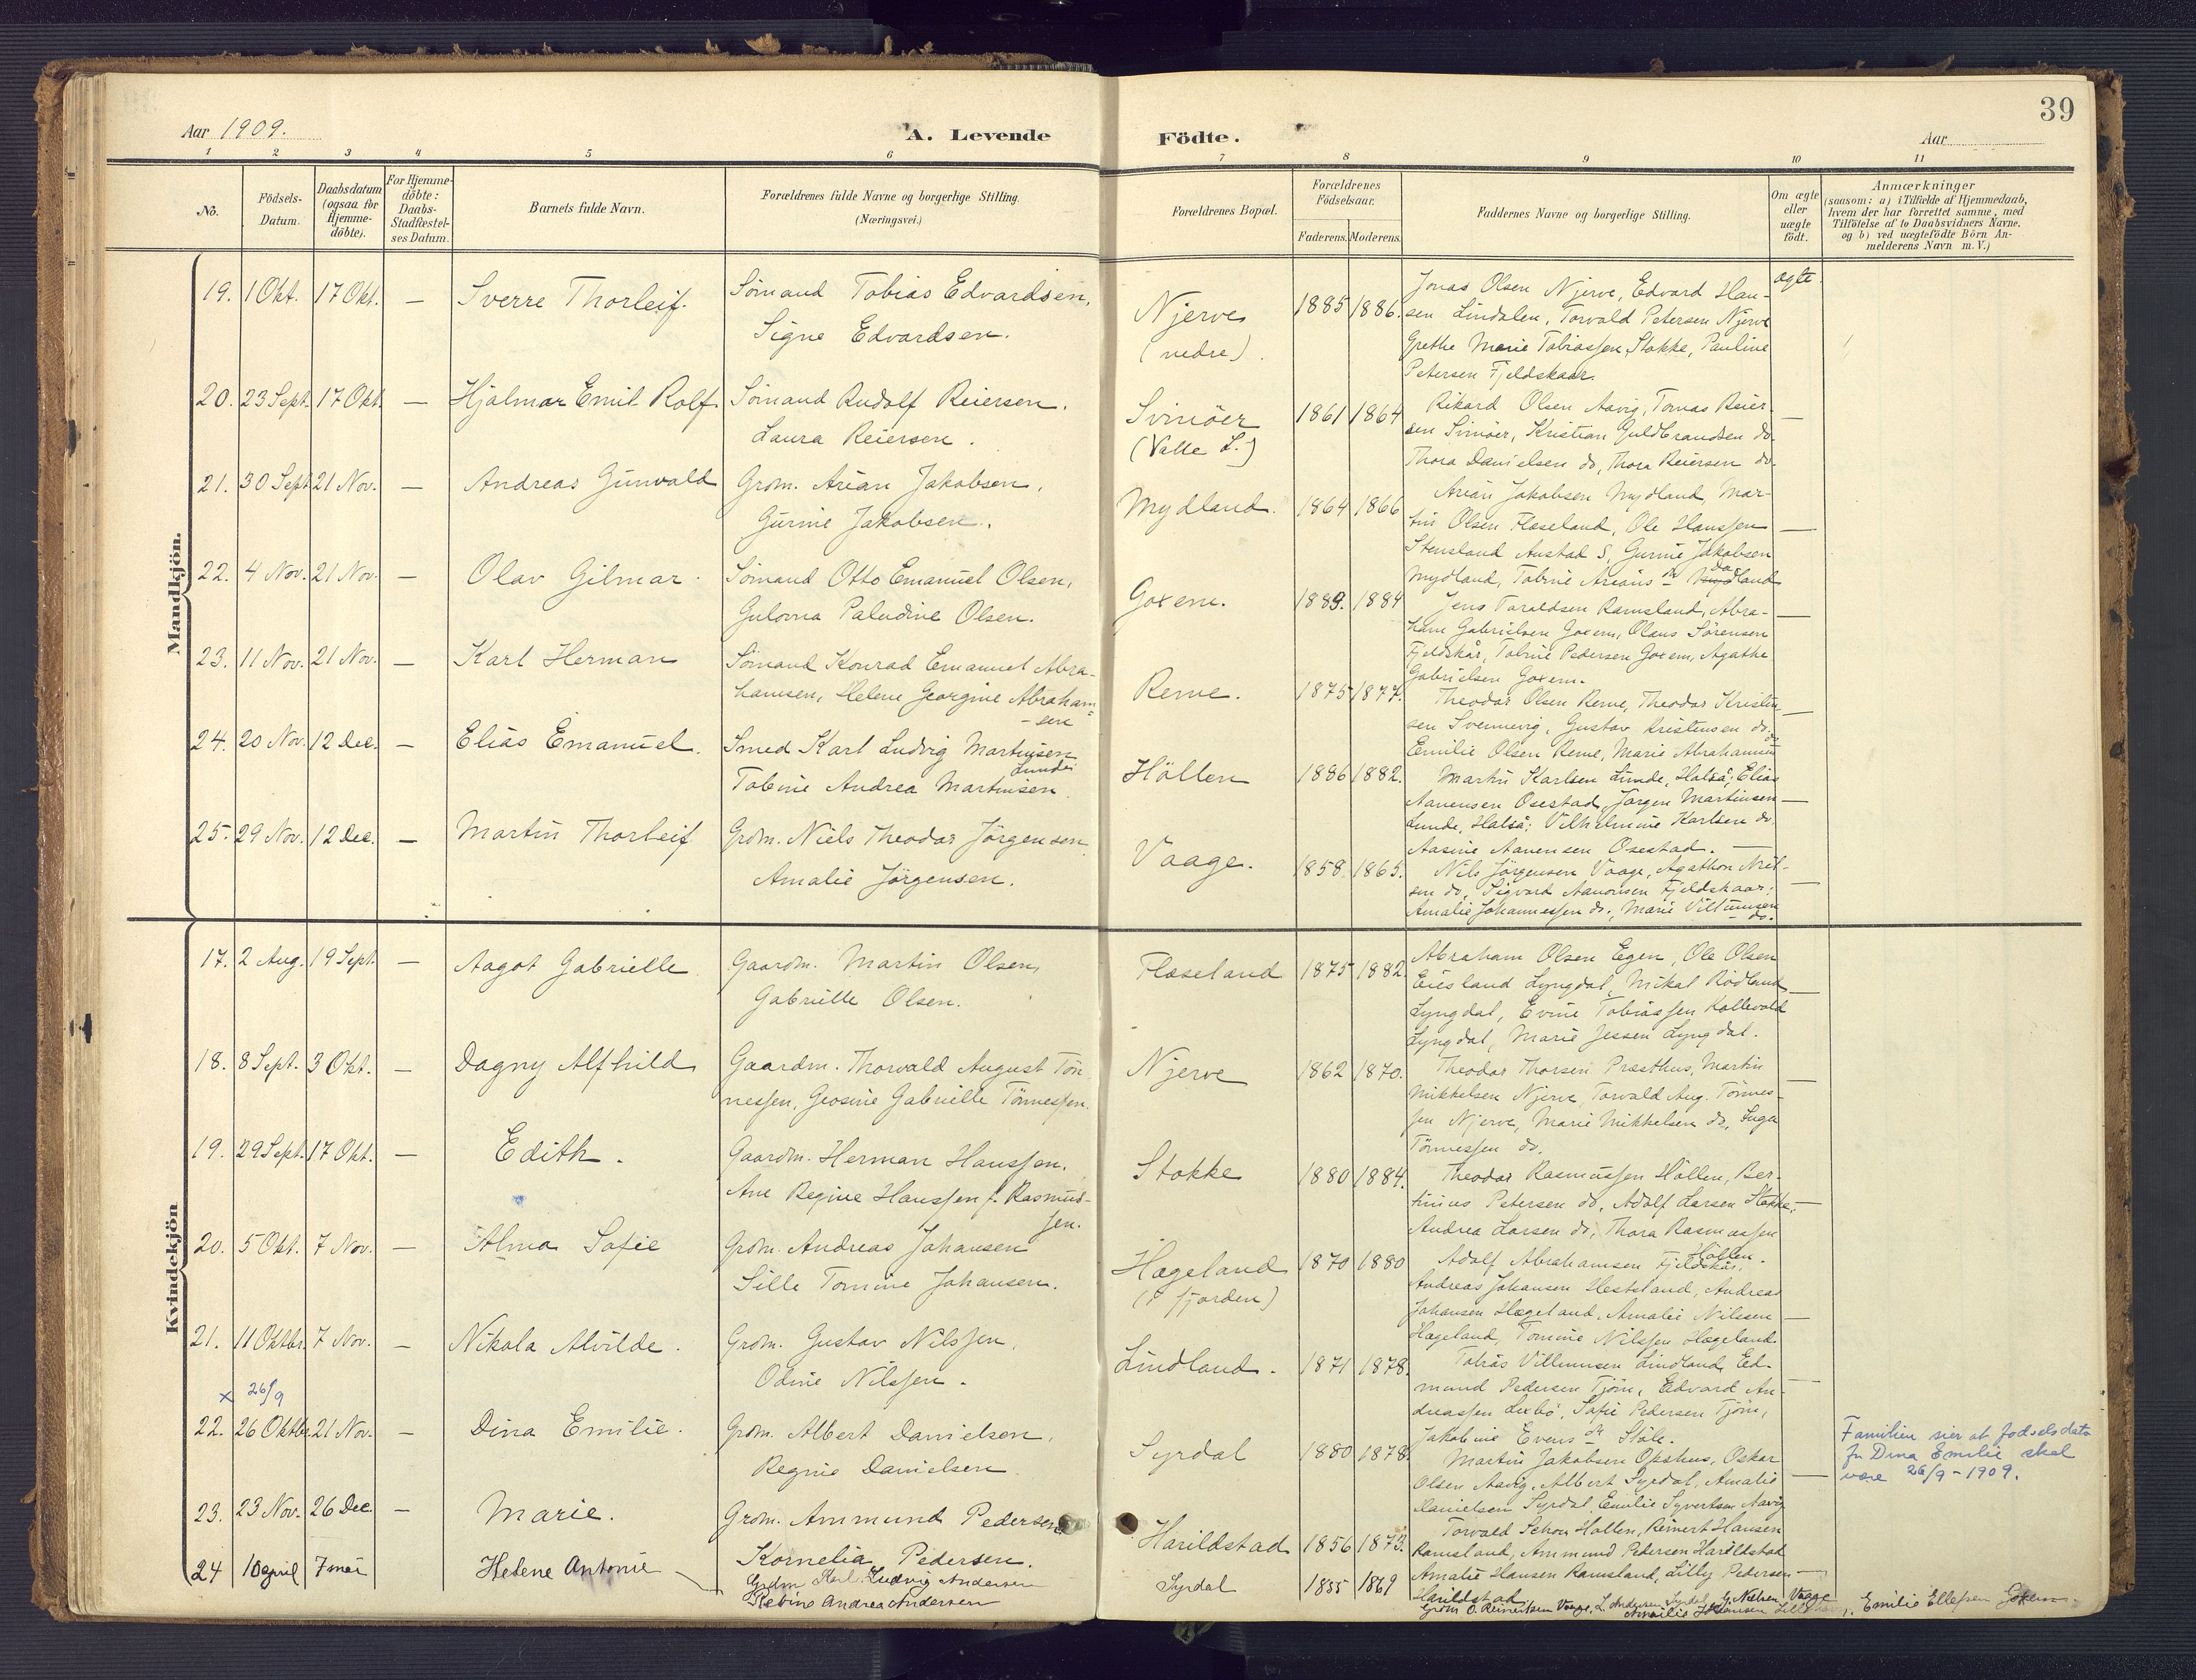 39
Aar 1909.
A. Levende
Födte.
Aar
1 2 3 4 5 6 7 8 9 10 11
No.
Födsels-
Datum.
Daabsdatum
(ogsaa for
Hjemme-
döbte).
For Hjemme-
döbte:
Daabs-
Stadfæstel-
ses Datum.
Barnets fulde Navn.
Forældrenes fulde Navne og borgerlige Stilling.
(Næringsvei.)
Forældrenes Bopæl.
Forældrenes
Födselsaar.
Faderens. Moderens.
Faddernes Navne og borgerlige Stilling.
Om ægte
eller
uægte
födt.
Anmærkninger
(saasom: a) i Tilfælde af Hjemmedaab,
hvem der har forrettet samme, med
Tilföielse af to Daabsvidners Navne,
og b) ved uægtefödte Börn An-
melderens Navn m. V.)
Mandkjön.
19. 1 Okt. 17 Okt. — Sverre Thorleif. Sömand Tobias Edvardsen,
Signe Edvardsen.
Njerve
(nedre).
1885 1886.
Jonas Olsen Njerve, Edvard Han-
sen Lindalen, Torvald Petersen Njerve
Grethe Marie Tobiassen Stokke, Pauline
Petersen Fjeldskaar.
ægte.
20. 23 Sept. 17 Okt. — Hjalmar Emil Rolf. Sömand Rudolf Reiersen.
Laura Reiersen.
Svinöer
(Valle S.)
1861 1864
Rikard Olsen Aavig, Tomas Reier-
sen Svinöer, Kristian Guldbrandsen do.
Thora Danielsen do, Thora Reiersen do.
—
21. 30 Sept. 21 Nov. — Andreas Gunvald Grdm. Arian Jakobsen,
Gurine Jakobsen.
Mydland.
1864 1866
Arian Jakobsen Mydland, Mar-
tin Olsen Flæseland, Ole Hanssen
Stensland Austad S, Gurine Jakobsen
Mydland, Tobine Arians dr Mydland
—
22. 4 Nov. 21 Nov. — Olav Gilmar. Sömand Otto Emanuel Olsen,
Gulovna Paludine Olsen.
Goxem.
1889. 1884
Jens Taraldsen Ramsland, Abra-
ham Gabrielsen Goxem, Olaus Sörensen
Fjeldskår, Tobine Pedersen Goxem, Agathe
Gabrielsen Goxem.
—
23. 11 Nov. 21 Nov. — Karl Herman Sömand Konrad Emanuel Abra-
hamsen, Helene Georgine Abraham-
-sen
Reme.
1875 1877.
Theodor Olsen Reme, Theodor Kristen
sen Svennevig, Gustav Kristensen do.
Emilie Olsen Reme, Marie Abrahamsen
—
24. 20 Nov. 12 Dec. — Elias Emanuel. Smed Karl Ludvig Martinsen
Lunde
Tobine Andrea Martinsen.
Höllen
1886 1882.
Martin Karlsen Lunde, Halså; Elias
Aanensen Osestad, Jörgen Martinsen
Lunde, Halså; Vilhelmine Karlsen do.
Aasine Aanensen Osestad.
—
25. 29 Nov. 12 Dec. — Martin Thorleif Grdm. Niels Theodor Jörgensen
Amalie Jörgensen.
Vaage.
1858. 1865.
Nils Jörgensen Vaage, Agathon Niel-
sen do, Sigvard Aanonsen Fjeldskaar;
Amalie Johannessen do., Marie Villumsen
do.
—
Kvindekjön
17. 2 Aug. 19 Sept. — Aagot Gabrielle Gaardm. Martin Olsen,
Gabrielle Olsen.
Flæseland
1875 1882
Abraham Olsen Egen, Ole Olsen
Eiesland Lyngdal, Mikal Rödland
Lyngdal, Evine Tobiassen Kollevold
Lyngdal, Marie Jessen Lyngdal.
—
18. 8 Sept. 3 Okt. — Dagny Alfhild Gaardm. Thorvald August Tön
nessen, Geosine Gabrielle Tönnessen.
Njerve
1862 1870.
Theodor Thorsen Præsthus, Martin
Mikkelsen Njerve, Torvald Aug. Tönnes-
sen Njerve, Marie Mikkelsen do, Inga
Tönnessen do.
—
19. 29 Sept. 17 Okt. — Edith. Gaardm. Herman Hanssen.
Ane Regine Hanssen f. Rasmus-
sen.
Stokke
1880 1884.
Theodor Rasmussen Höllen, Ber-
tinius Petersen do, Adolf Larsen Stokke,
Andrea Larsen do; Thora Rasmussen
Höllen.
—
20. 5 Okt. 7 Nov. — Alma Sofie Grdm. Andreas Johansen
Sille Tomine Johansen.
Hægeland
(i fjorden)
1870 1880
Adolf Abrahamsen Fjeldskår,
Andreas Johansen Hesteland, Andreas
Johansen Hægeland, Amalie Nilssen
Hægeland, Tomine Nilssen Hægeland.
—
21. 11 Oktbr. 7 Nov. — Nikola Alvilde. Grdm. Gustav Nilssen,
Odine Nilssen.
Lindland.
1871 1878.
Tobias Villumsen Lindland, Ed-
mund Pedersen Tjöm, Edvard An-
dreassen Lexbö, Sofie Pedersen Tjöm,
Jakobine Evens dr Ståle.
—
x 26/9
22. 26 Oktbr. 21 Nov. — Dina Emilie. Grdm. Albert Danielsen,
Regine Danielsen
Syrdal
1880 1878.
Martin Jakobsen Opshus, Oskar
Olsen Aavig, Albert Syrdal, Amalie
Danielsen Syrdal, Emilie Syvertsen Aavig
—
Familien sier at fødselsdato
for Dina Emilie skal
være 26/9-1909.
23. 23 Nov. 26 Dec. — Marie. Grdm. Ammund Pedersen
Kornelia Pedersen.
Harildstad
1856 1873.
Torvald Schou Höllen, Reinert Hansen
Ramsland, Ammund Pedersen Harildstad
Amalie Hansen Ramsland, Lilly Pedersen
Harildstad
—
24 10 april 7 mai Helene Antonie Grdm Karl Ludvig Andersen
Rebine Andrea Andersen
Syrdal
1855 1869
Grdm O. Reinertsen Vaage, L. Andersen Syrdal, G. Nielsen Vaage
Amalie Johansen, Emilie Ellefsen Goxem.